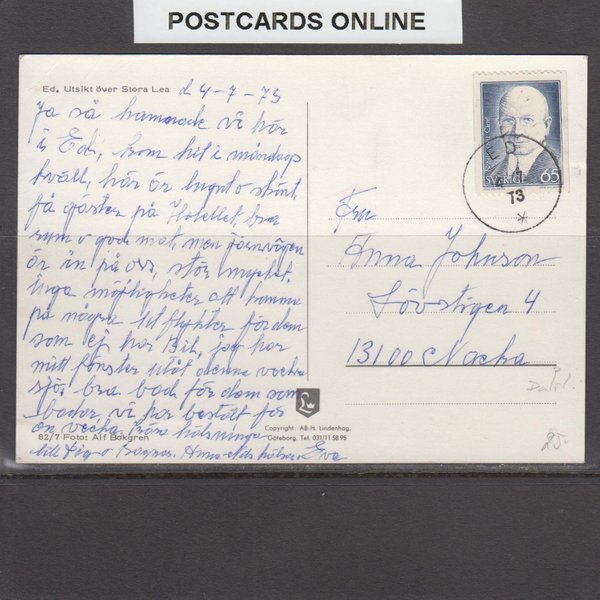 POSTCARDS ONLINE
Ed. Utsikt över Stora Lea d 4-7-73
Ja så hamnade vi här
i Ed, kom hit i måndags
kväll, här är lugnt o skönt,
få gäster på Hotellet, bra
rum o god mat, men järnvägen
är in på oss, stör mycket,
inga möjligheter att komma
på några utflykter för dem
som ej har Bil, jag har
mitt fönster utåt denna vackra
sjö, bra bad för dem som
badar, vi har beställt för
en vecka, kära hälsningar
till Dig o Ragnar. Anna-Lisa hälsar. Eva
Fru
Anna Johnson
Lövstigen 4
13100 Nacka
SVERIGE 65
ED
4 7
73
Copyright: AB H. Lindenhag,
Göteborg. Tel. 031/11 58 95
82/7 Foto: Alf Bokgren
25-